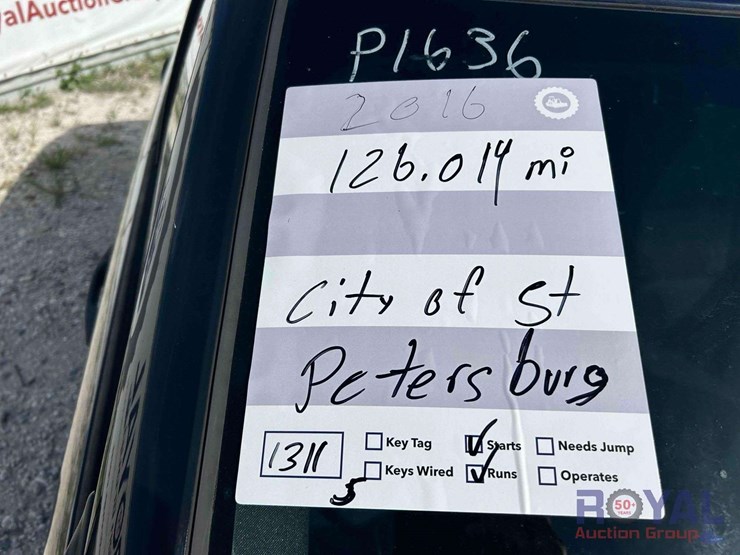 yalAuction
P1636
2016
126.014 mi
City of St
Petersburg
1311
5
Key Tag
Starts
Needs Jump
Keys Wired
Runs
Operates
ROYAL
50+
YEARS
Auction Group